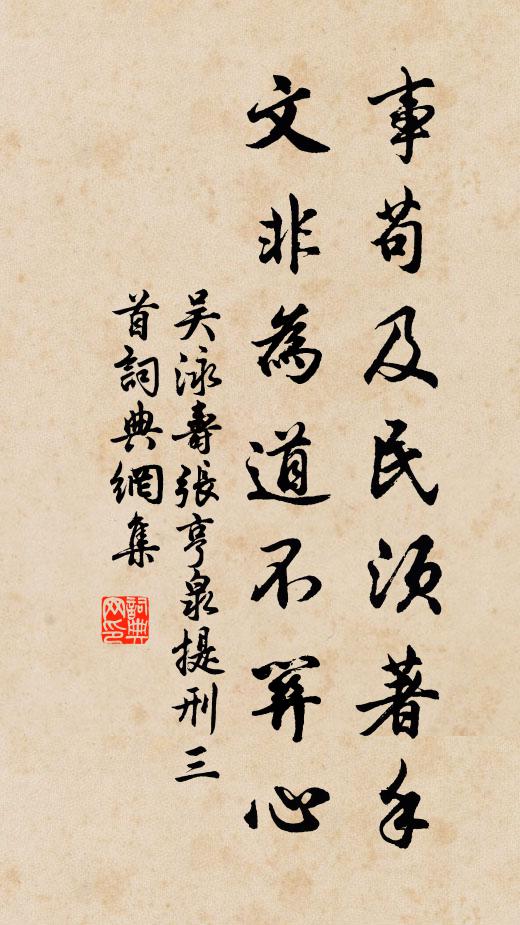 事苟及民須著手
文非為道不關心
吳泳壽張亨泉提刑三
首詞典網集
詞典
网印